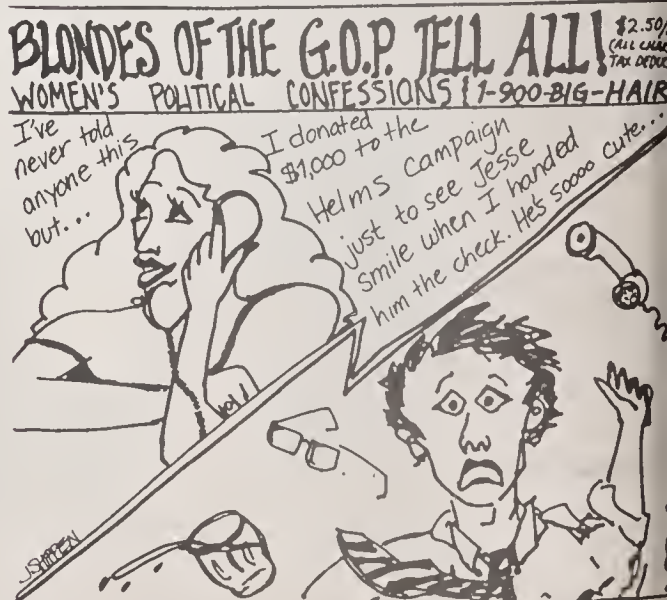 BLONDES OF THE G.O.P. TELL ALL!
$2.50/
(ALL
TAX
WOMEN'S POLITICAL CONFESSIONS! 1-900-BIG-HAIR
I've
never told
anyone this
but...
I donated
$1,000 to the
Helms campaign
just to see Jesse
smile when I handed
him the check. He's soooo cute...